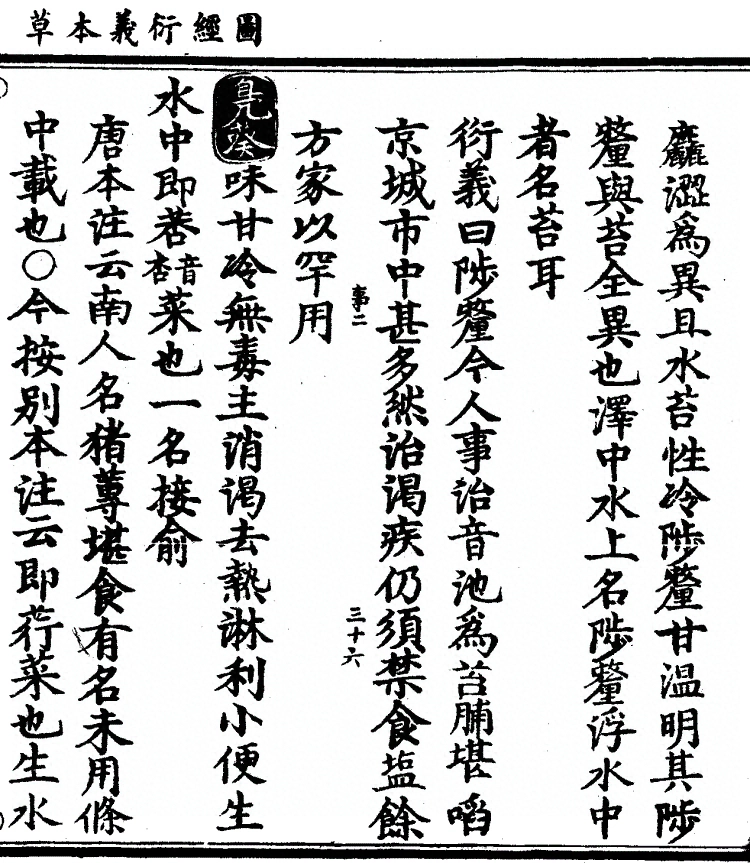 圖經衍義本草
麤澀爲異且水苔性冷陟釐甘温明其陟
釐與苔全異也澤中水上名陟釐浮水中
者名苔耳
衍義曰陟釐今人事治音池爲苔脯堪啗
京城市中甚多然治渴疾仍須禁食塩餘
事二 三十六
方家以罕用
鳧葵味甘冷無毒主消渴去熱淋利小便生
水中即莕音杏菜也一名接俞
唐本注云南人名猪蓴堪食有名未用條
中載也○今按别本注云即荇菜也生水